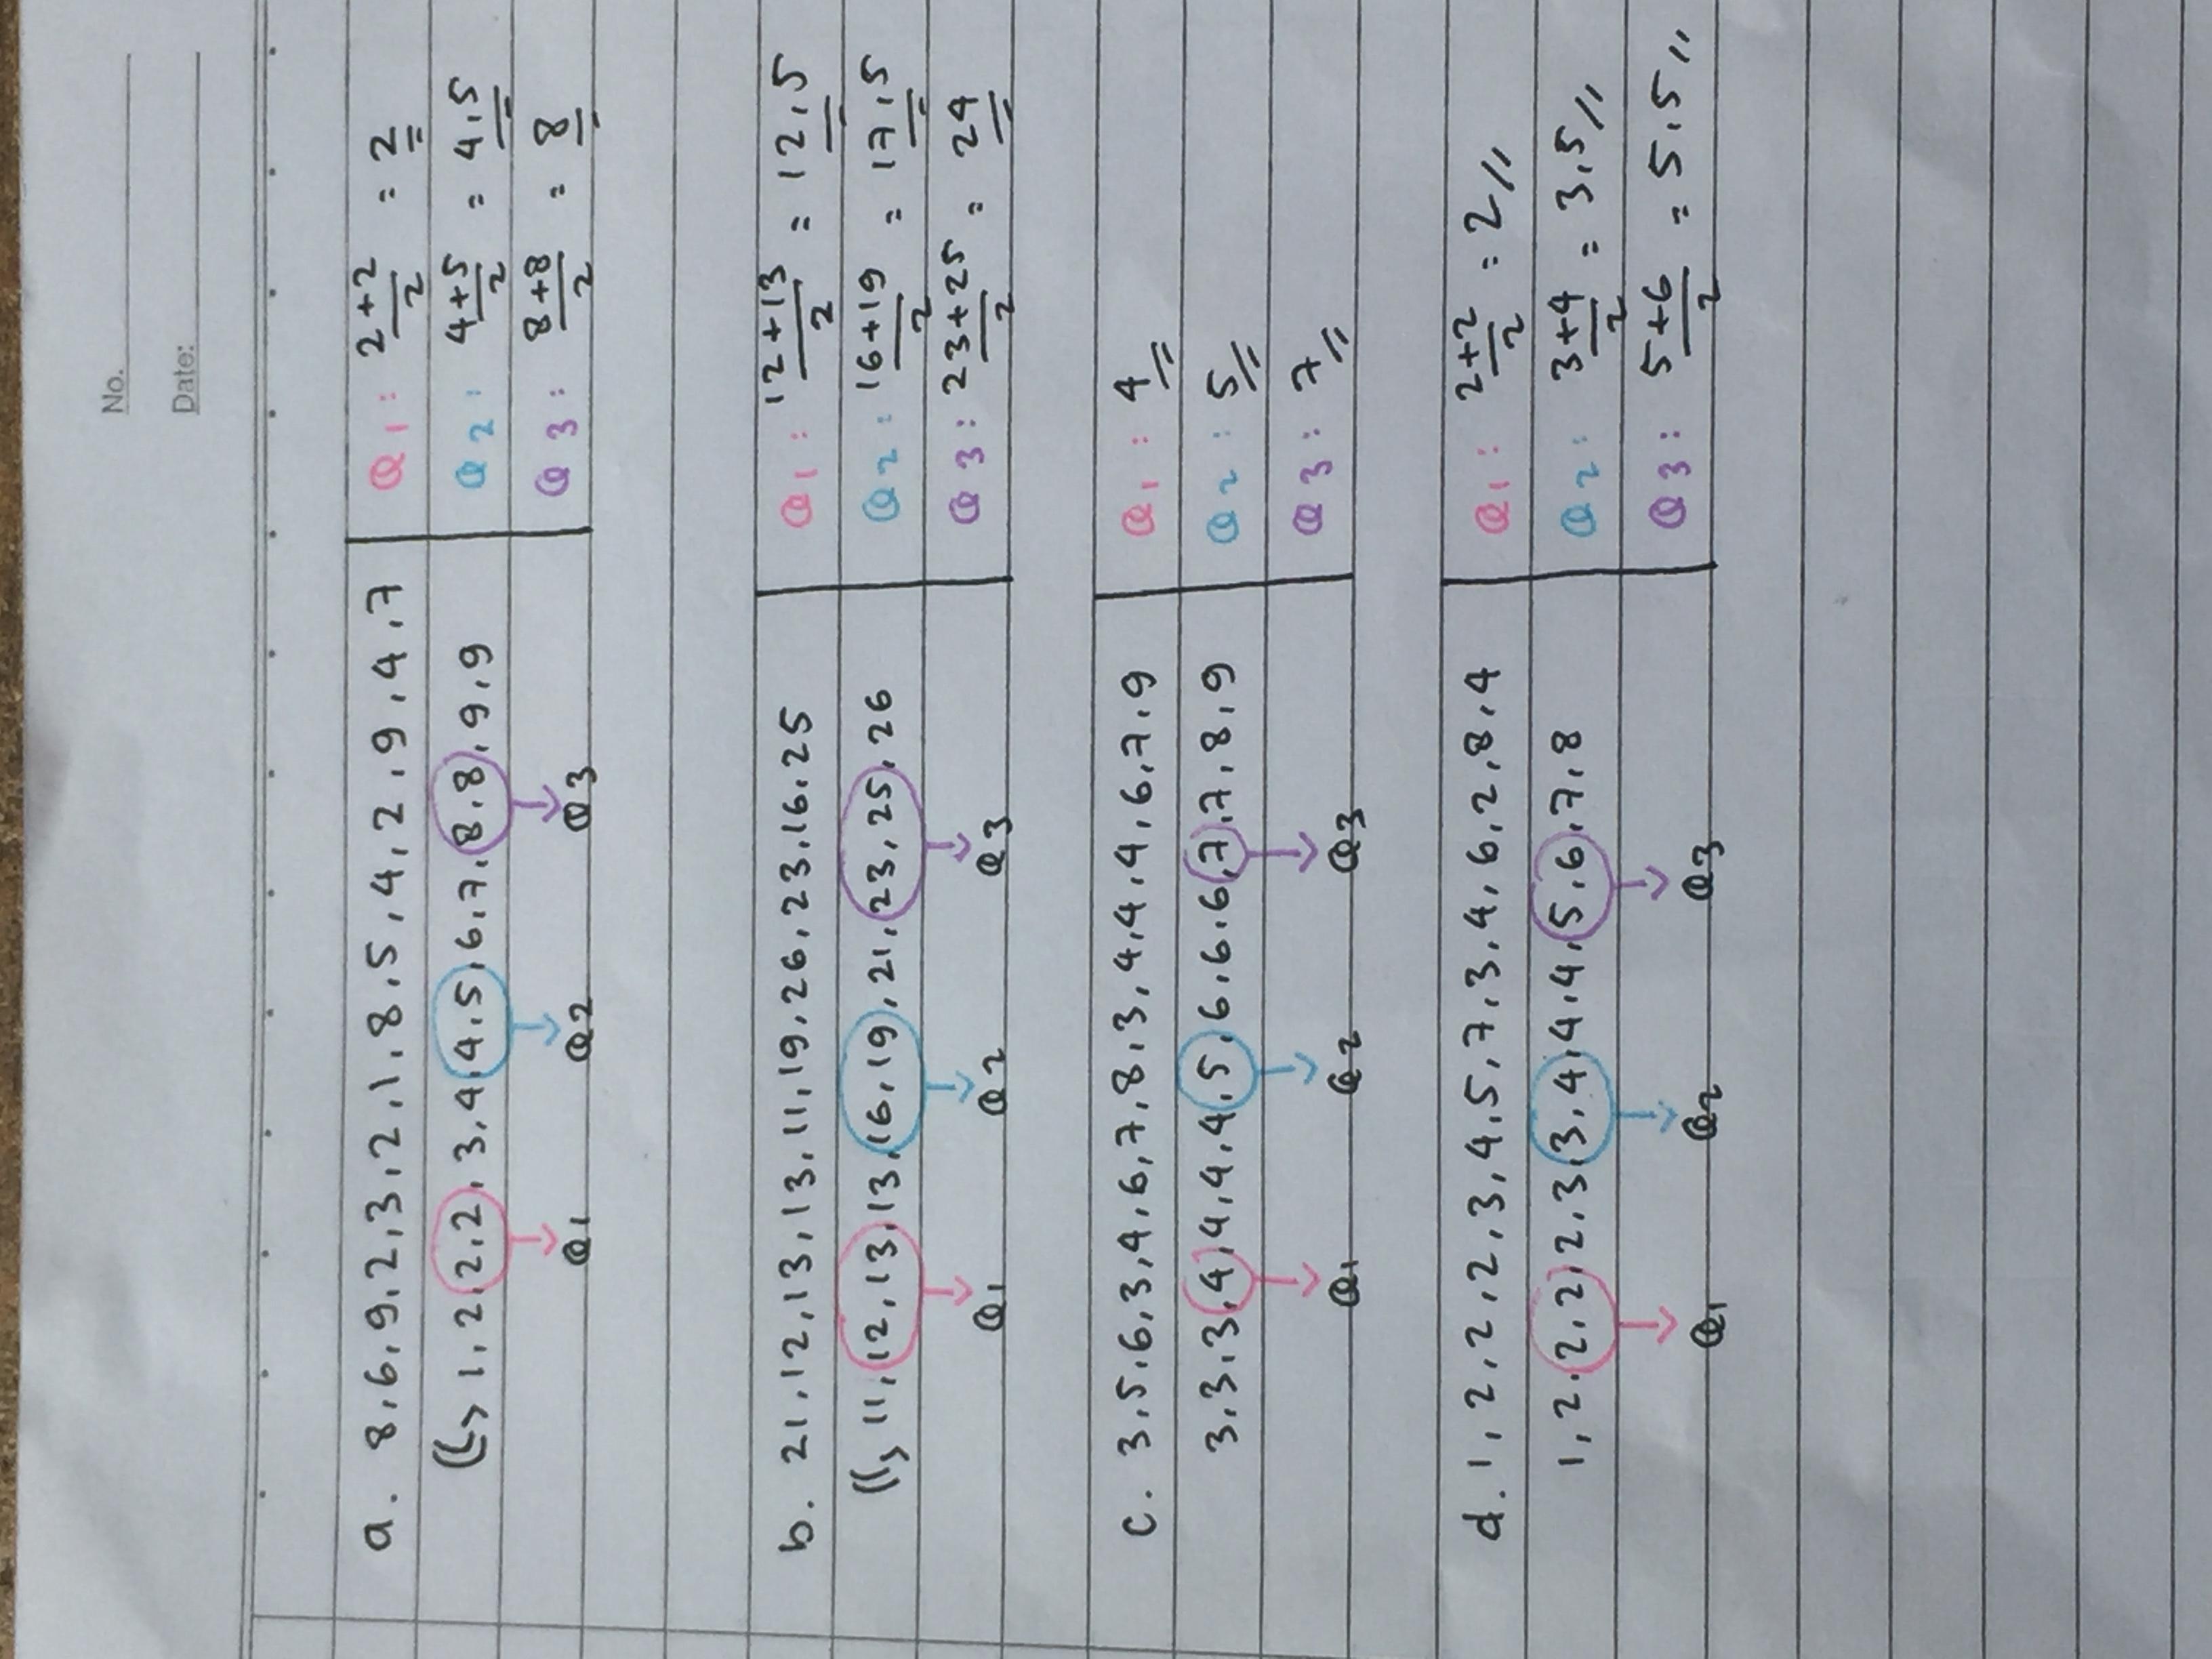 No.
Date:
a. 8,6,9,2,3,2,1,8,5,4,2,9,4,7
Q1: 2+2/2 = 2
1,2,2,2,3,4,4,5,6,7,8,8,9,9
Q2: 4+5/2 = 4,5
Q1 Q2 Q3
Q3: 8+8/2 = 8
b. 21,12,13,13,11,19,26,23,16,25
Q1: 12+13/2 = 12,5
11,12,13,13,16,19,21,23,25,26
Q2: 16+19/2 = 17,5
Q1 Q2 Q3
Q3: 23+25/2 = 24
c. 3,5,6,3,4,6,7,8,3,4,4,4,6,7,9
Q1: 4
3,3,3,4,4,4,4,5,6,6,6,7,7,8,9
Q2: 5
Q1 Q2 Q3
Q3: 7
d. 1,2,2,2,3,4,5,7,3,4,6,2,8,4
Q1: 2+2/2 = 2
1,2,2,2,2,3,3,4,4,4,5,6,7,8
Q2: 3+4/2 = 3,5
Q1 Q2 Q3
Q3: 5+6/2 = 5,5